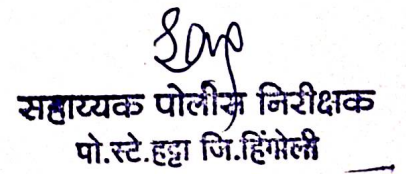 सहाय्यक पोलीस निरीक्षक
पो.स्टे.हट्टा जि.हिंगोली